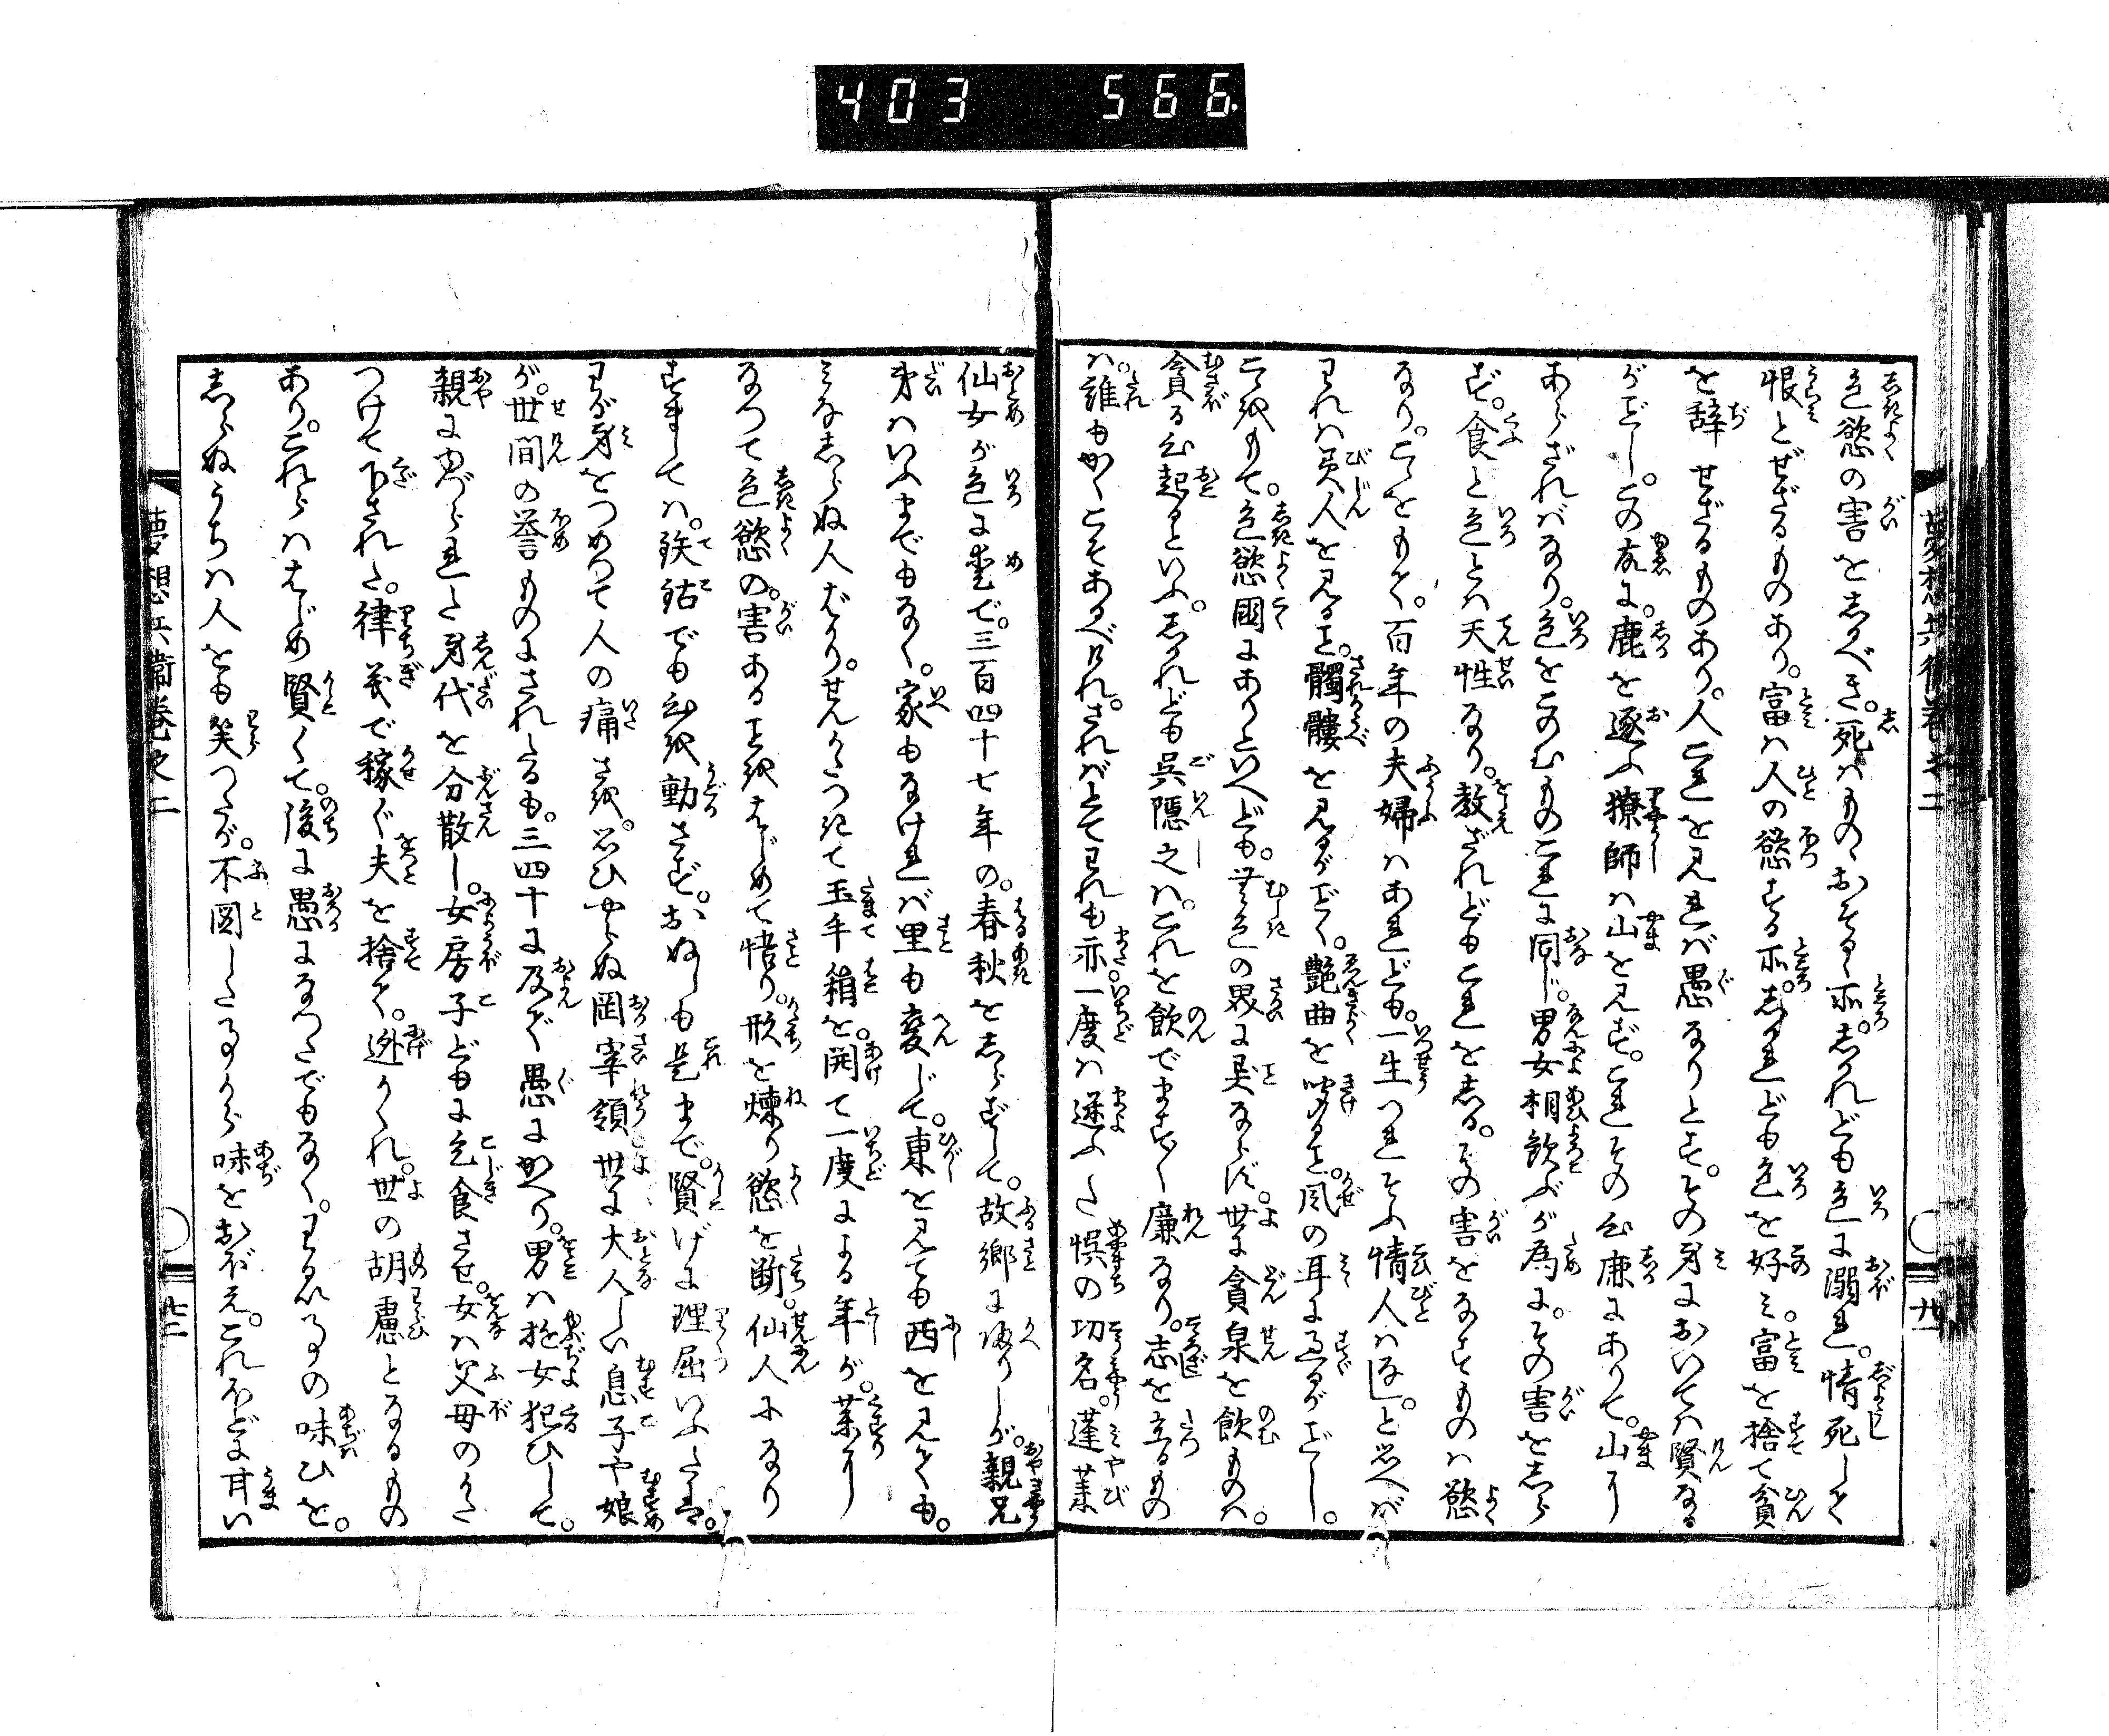 403 566
色慾の害をしるべき。死はものゝおそるゝ所。しかれども色に溺れ。情死して
恨とせざるものあり。富は人の慾する所。しかれども色を好み。富を捨て貧
を辞せざるものあり。人これを見れば愚なりとす。その身においては賢なる
がごとし。この故に。鹿を逐ふ猟師は山を見ず。これその心鹿にありて。山に
あらざればなり。色をこのむものこれに同じ。男女相歓ぶが為に。その害をしら
ず。食と色とは天性なり。教ざれどもこれをしる。その害をなすものは慾
なり。こゝをもて。百年の夫婦はあれども。一生つれそふ情人はなし。と思へば
われは美人を見ること。髑髏を見るがごとく。艶曲を聞こと。風の耳に過るがごとし。
こゝをもて。色慾国にありといへども。無色の界に異ならず。世に貪泉を飲ものは。
貪る心起るといふ。しかれども呉隠之は。これを飲でますます廉なり。志を立るもの
は。誰もかくこそあるべけれ。さればとてわれも亦。一度は迷ふた悞の功名。蓬莱
仙女が色に愛で。三百四十七年の。春秋をしらずして。故郷に帰りしが。親兄
弟はいふまでもなく。家もなければ里も変じて。東を見ても西を見ても。
みなしらぬ人ばかり。せんかたつきて玉手箱を。開て一度による年が。薬に
なつて色慾の。害あることをはじめて悟り。形を煉り慾を断。仙人になり
すましては。鉄砧でも心を動さず。おぬしも是まで。賢げに理屈いふたは。
わが身をつめつて人の痛さを。思ひやらぬ岡宰領世に大人しい息子や娘
が。世間の誉ものにされたるも。三四十に及で愚にかへり。男は遊女狂ひして。
親にゆづられた身代を分散し。女房子どもに乞食させ。女は父母のかた
つけて下された。律義で稼ぐ夫を捨て。迯かくれ。世の胡慮となるもの
あり。これらははじめ賢くて。後に愚になつたでもなく。わるい事の味ひを。
しらぬうちは人をも笑つたが。不図した事から味をおぼえ。これほどに甘い
夢想兵衛巻之二